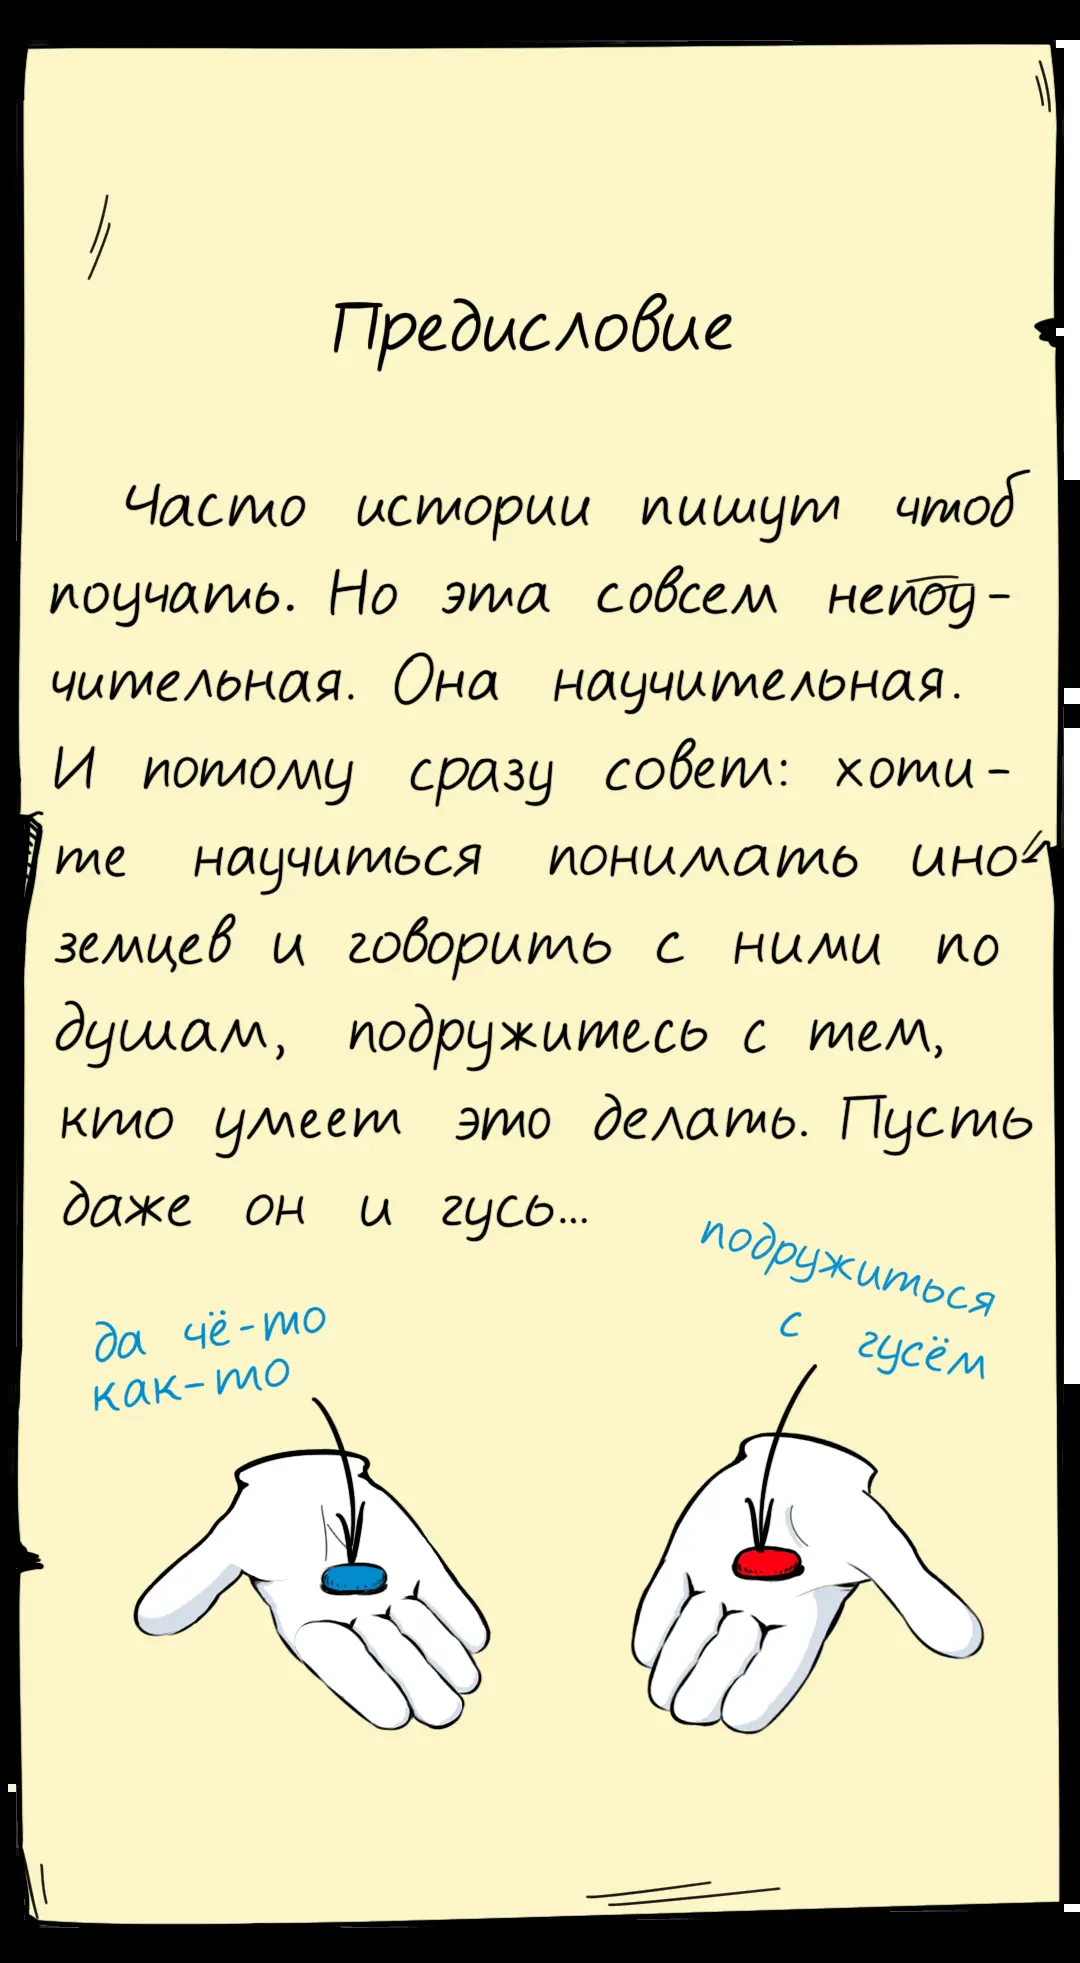 Предисловие
Часто истории пишут чтоб
поучать. Но эта совсем непоу-
чительная. Она научительная.
И потому сразу совет: хоти-
те научиться понимать ино-
земцев и говорить с ними по
душам, подружитесь с тем,
кто умеет это делать. Пусть
даже он и гусь...
да чё-то
как-то
подружиться
с гусём